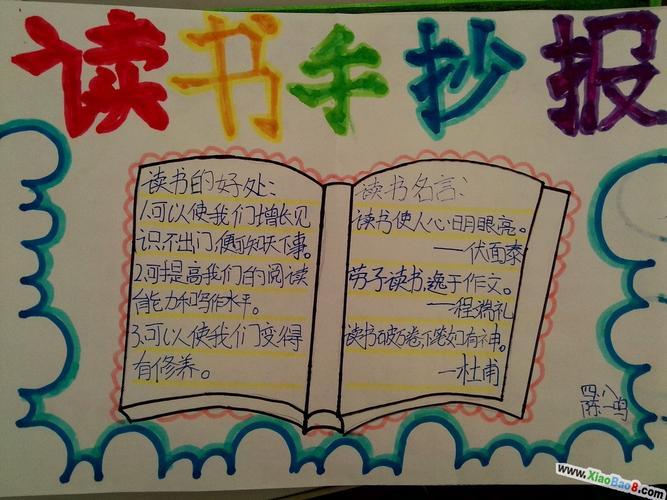 读书手抄报
读书的好处:
1.可以使我们增长见
识,不出门便可知天下事。
2.可提高我们的阅读
能力和写作水平。
3.可以使我们变得
有修养。
读书名言:
读书使人心明眼亮。
——伏尔泰
劳于读书,逸于作文。
—程端礼
读书破万卷,下笔如有神。
—杜甫
四、八
陈一鸣
www.XiaoBao8.com